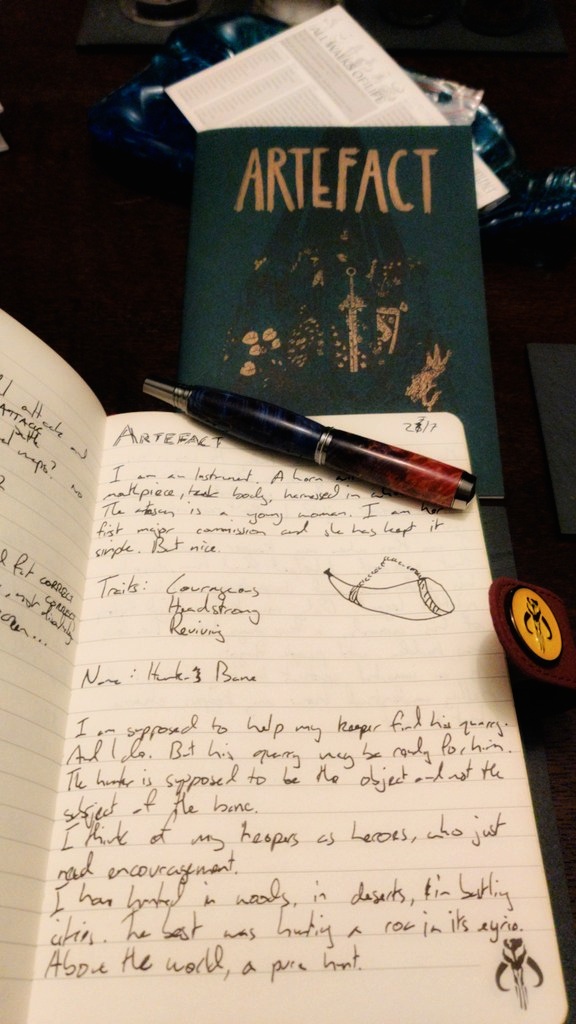 ALL WALKS OF LIFE
ARTEFACT
attack and
ATTACK
maps? NO
ARTEFACT
28/7
I am an Instrument. A horn
mothpiece, teak body, harnessed in
The is a young woman. I am her
first major commission and she has kept it
simple. But nice.
Traits: Courageous
Headstrong
Reviving
Name: Hunter's Bane
I am supposed to help my keeper find his quarry.
And I do. But his quarry may be ready for him.
The hunter is supposed to be the object and not the
subject of the bane.
I think of my keepers as heroes, who just
need encouragement.
I have hunted in woods, in deserts, in bustling
cities. The best was hunting a roc in its eyrie.
Above the world, a pure hunt.